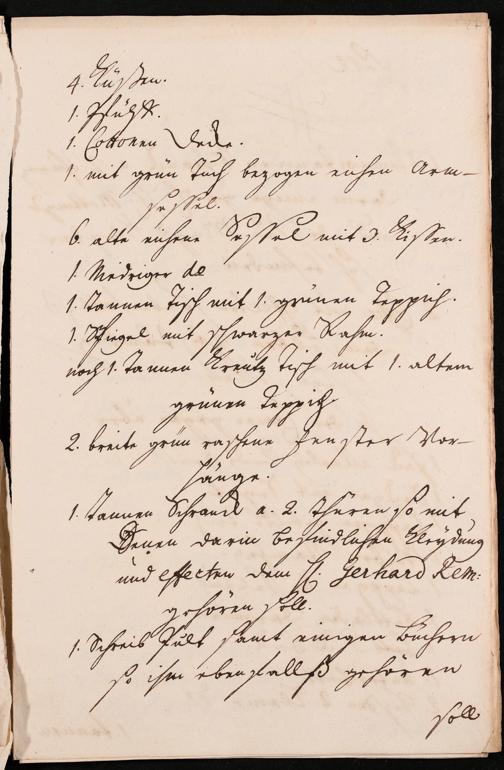 4. Küßen.
1. Pfühl.
1. Cottonen Decke.
1. mit grün Tuch bezogen eichen Arm-
sessel.
6. alte eichene Sessel mit 3. Kissen.
1. Niedriger de
1. tannen Tisch mit 1. grünen Teppich.
1. Spiegel mit schwarzer Rahm.
noch 1. Tannen Kreutz Tisch mit 1. altem
grünen Teppich
2. breite grün raschene Fenster Vor-
hänge.
1. tannen Schranck a. 2. Thüren so mit
Denen darin befindlichen Kleydung
und effecten dem H. Gerhard Rem:
gehören soll.
1. Schreib Pult samt einigen Büchern
so ihm ebenfallß gehören
soll